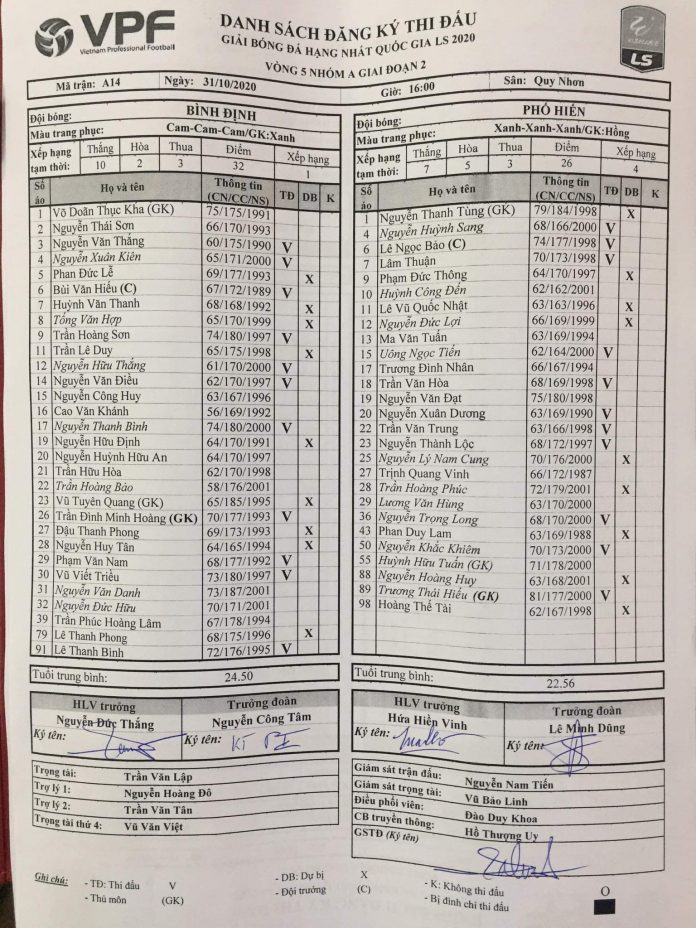 VPF
Vietnam Professional Football
DANH SÁCH ĐĂNG KÝ THI ĐẤU
GIẢI BÓNG ĐÁ HẠNG NHẤT QUỐC GIA LS 2020
VÒNG 5 NHÓM A GIAI ĐOẠN 2
LS
Mã trận: A14 Ngày: 31/10/2020 Giờ: 16:00 Sân: Quy Nhơn
Đội bóng: BÌNH ĐỊNH
Màu trang phục: Cam-Cam-Cam/GK:Xanh
Xếp hạng tạm thời: Thắng Hòa Thua Điểm Xếp hạng
10 2 3 32 1
Số áo Họ và tên Thông tin (CN/CC/NS) TĐ DB K
1 Võ Doãn Thục Kha (GK) 75/175/1991
2 Nguyễn Thái Sơn 66/170/1993
3 Nguyễn Văn Thắng 60/175/1990 V
4 Nguyễn Xuân Kiên 65/171/2000 V
5 Phan Đức Lễ 69/177/1993 X
6 Bùi Văn Hiếu (C) 67/172/1989 V
7 Huỳnh Văn Thanh 68/168/1992 X
8 Tống Văn Hợp 65/170/1999 X
9 Trần Hoàng Sơn 74/180/1997 V
11 Trần Lê Duy 65/175/1998 X
12 Nguyễn Hữu Thắng 61/170/2000 V
14 Nguyễn Văn Điều 62/170/1997 V
15 Nguyễn Công Huy 63/167/1996
16 Cao Văn Khánh 56/169/1992
17 Nguyễn Thanh Bình 74/180/2000 V
19 Nguyễn Hữu Định 64/170/1991 X
20 Nguyễn Huỳnh Hữu An 64/170/1997
21 Trần Hữu Hòa 62/170/1998
22 Trần Hoàng Bảo 58/176/2001
23 Vũ Tuyên Quang (GK) 65/185/1995 X
26 Trần Đình Minh Hoàng (GK) 70/177/1993 V
27 Đậu Thanh Phong 69/173/1993 X
28 Nguyễn Huy Tân 64/165/1994 X
29 Phạm Văn Nam 68/177/1992 V
30 Vũ Viết Triều 73/180/1997 V
31 Nguyễn Văn Danh 73/187/2001
32 Nguyễn Đức Hữu 70/171/2001
39 Trần Phúc Hoàng Lâm 67/178/1994
79 Lê Thanh Phong 68/175/1996 X
91 Lê Thanh Bình 72/176/1995 V
Tuổi trung bình: 24.50
HLV trưởng Trưởng đoàn
Nguyễn Đức Thắng Nguyễn Công Tâm
Ký tên: Ký tên:
Trọng tài: Trần Văn Lập
Trợ lý 1: Nguyễn Hoàng Đô
Trợ lý 2: Trần Văn Tân
Trọng tài thứ 4: Vũ Văn Việt
Đội bóng: PHỐ HIẾN
Màu trang phục: Xanh-Xanh-Xanh/GK:Hồng
Xếp hạng tạm thời: Thắng Hòa Thua Điểm Xếp hạng
7 5 3 26 4
Số áo Họ và tên Thông tin (CN/CC/NS) TĐ DB K
1 Nguyễn Thanh Tùng (GK) 79/184/1998 X
4 Nguyễn Huỳnh Sang 68/166/2000 V
6 Lê Ngọc Bảo (C) 74/177/1998 V
7 Lâm Thuận 70/173/1998 V
9 Phạm Đức Thông 64/170/1997 X
10 Huỳnh Công Đến 62/162/2001
11 Lê Vũ Quốc Nhật 63/163/1996 X
12 Nguyễn Đức Lợi 66/169/1999 X
13 Ma Văn Tuấn 63/169/1994
15 Uông Ngọc Tiến 62/164/2000 V
17 Trương Đình Nhân 66/167/1994
18 Trần Văn Hòa 68/169/1998 V
19 Nguyễn Văn Đạt 75/180/1998
20 Nguyễn Xuân Dương 63/169/1990 V
22 Trần Văn Trung 63/166/1998 V
23 Nguyễn Thành Lộc 68/172/1997 V
25 Nguyễn Lý Nam Cung 70/176/2000 X
27 Trịnh Quang Vinh 66/172/1987
28 Trần Hoàng Phúc 72/179/2001 X
29 Lương Văn Hùng 63/170/2000
36 Nguyễn Trọng Long 68/170/2000 V
43 Phan Duy Lam 63/169/1988 X
50 Nguyễn Khắc Khiêm 70/173/2000 V
55 Huỳnh Hữu Tuấn (GK) 71/178/2000
88 Nguyễn Hoàng Huy 63/168/2001 X
89 Trương Thái Hiếu (GK) 81/177/2000 V
98 Hoàng Thế Tài 62/167/1998 X
Tuổi trung bình: 22.56
HLV trưởng Trưởng đoàn
Hứa Hiền Vinh Lê Minh Dũng
Ký tên: Ký tên:
Giám sát trận đấu: Nguyễn Nam Tiến
Giám sát trọng tài: Vũ Bảo Linh
Điều phối viên: Đào Duy Khoa
CB truyền thông: Hồ Thượng Uy
GSTĐ (Ký tên)
Ghi chú: - TĐ: Thi đấu V - DB: Dự bị X - K: Không thi đấu O
- Thủ môn (GK) - Đội trưởng (C) - Bị đình chỉ thi đấu